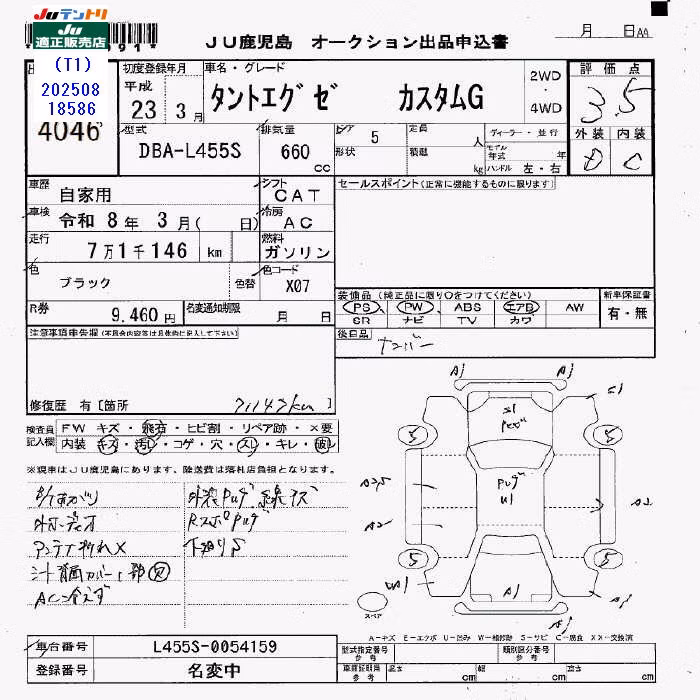 Juテントリ
JU
適正販売店
(T1)
202508
18586
4046
JU鹿児島 オークション出品申込書
月 日AA
初度登録年月
平成
23 3月
車名・グレード
タントエグゼ カスタムG
2WD
・
4WD
評価点
3.5
外装 内装
D C
型式
DBA-L455S
排気量
660
cc
ドア 5
形状
定員
人
積載
kg
ディーラー・並行
モデル
年式 年
ハンドル 左・右
車歴
自家用
シフト
CAT
セールスポイント(正常に機能するものに限ります)
車検
令和 8年 3月( 日)
冷房
AC
走行
7万1千146 km
燃料
ガソリン
色
ブラック
色替
色コード
X07
R券
9,460円
名変通知期限
月 日
装備品(純正品に限り○をつけてください)
PS PW ABS エアB AW
SR ナビ TV カワ
新車保証書
有・無
注意事項申告欄(不具合内容等は具体的に記入して下さい)
後日品
ナンバー
修復歴 有 [箇所 71147km ]
検査員
記入欄
FW キズ・飛石・ヒビ割・リペア跡・×要
内装 キズ・汚レ・コゲ・穴・スレ・キレ・破レ
※現車はJU鹿児島にあります、陸送費は落札店負担となります。
外装PUグ 線キズ
アンテナ折れ×
下廻りS
AC冷えず
A1
A1
5
5
5
5
A2
A1
A1
スペア
A-キズ E-エクボ U-凹み W-補修跡 S-サビ C-腐食 XX-交換済
車台番号
L455S-0054159
登録番号
名変中
型式指定番号
参考
類別区分番号
参考
車庫証明用
参考
長さ
cm
幅
cm
高さ
cm